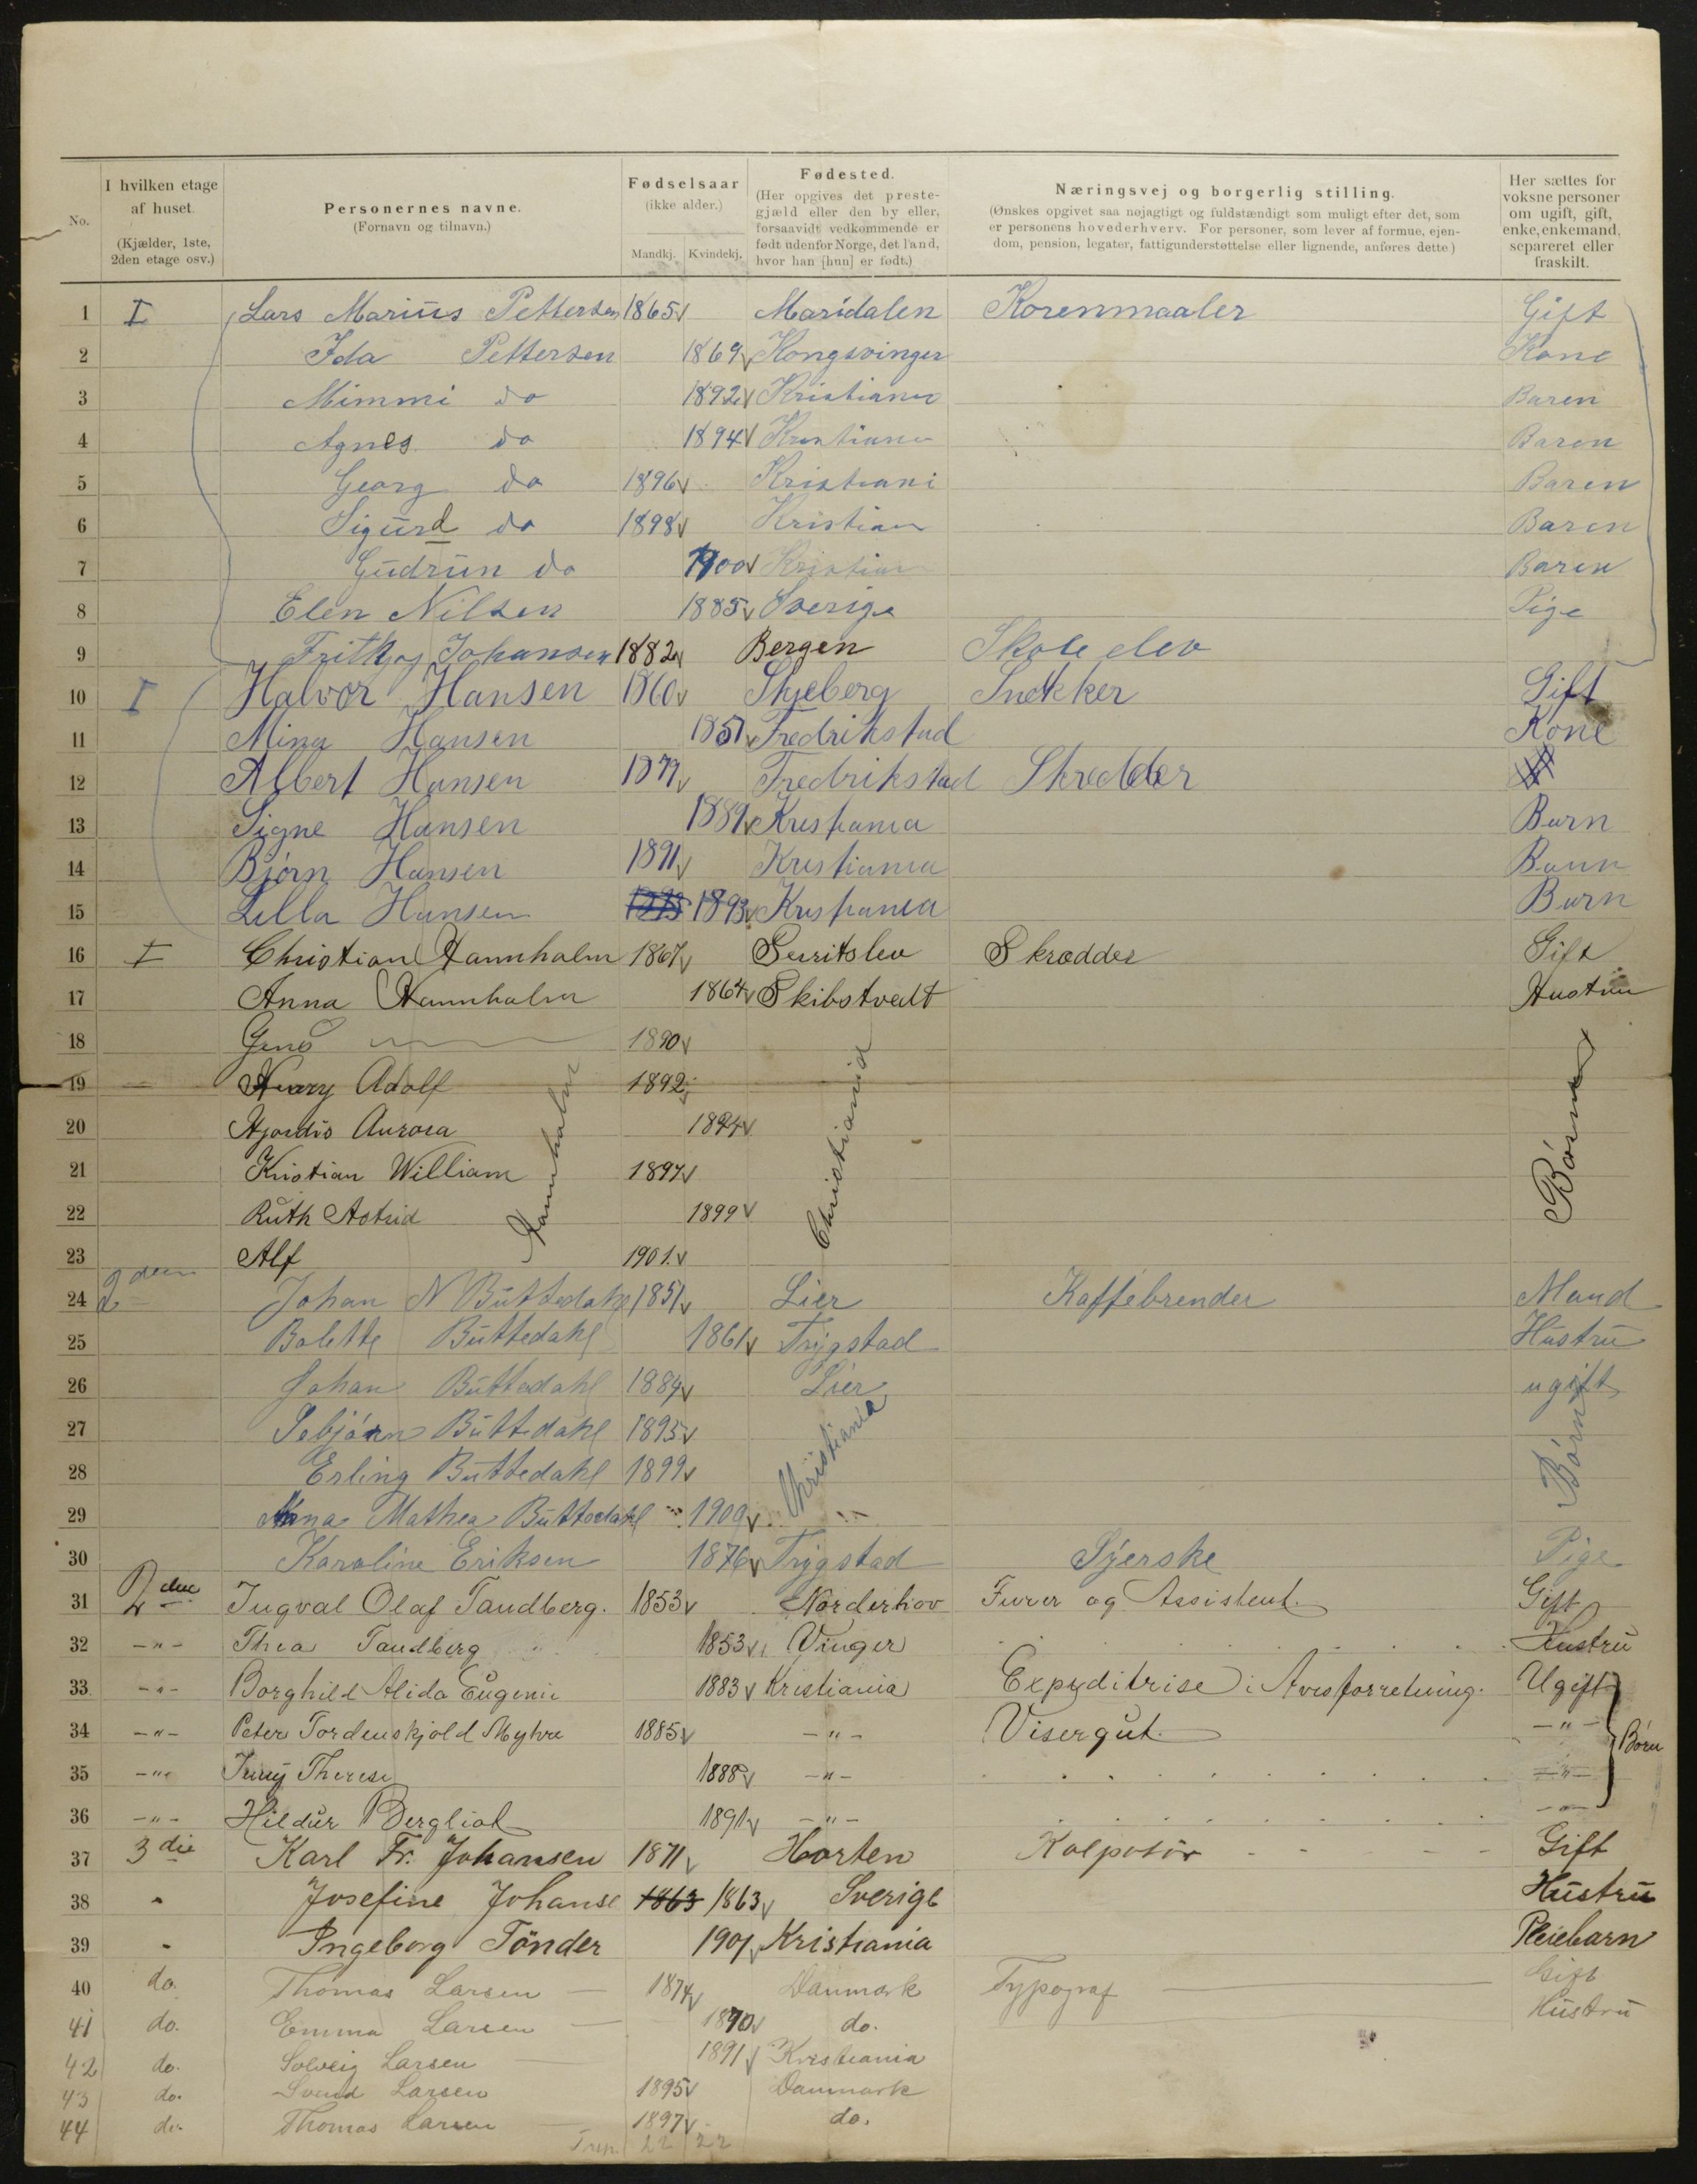 No.
I hvilken etage af huset. (Kjælder, 1ste, 2den etage osv.)
Personernes navne. (Fornavn og tilnavn.)
Fødselsaar (ikke alder.) Mandkj. Kvindekj.
Fødested. (Her opgives det prestegjæld eller den by eller, forsaavidt vedkommende er født udenfor Norge, det land, hvor han [hun] er født.)
Næringsvej og borgerlig stilling. (Ønskes opgivet saa nøjagtigt og fuldstændigt som muligt efter det, som er personens hovederhverv. For personer, som lever af formue, ejendom, pension, legater, fattigunderstøttelse eller lignende, anføres dette)
Her sættes for voksne personer om ugift, gift, enke, enkemand, separeret eller fraskilt.
1 I Lars Marius Pettersen 1865 Maridalen Korenmaaler Gift
2 Ida Pettersen 1869 Kongsvinger Kone
3 Mimmi do 1892 Kristiania Baren
4 Agnes do 1894 Kristiania Baren
5 Georg do 1896 Kristiani Baren
6 Sigurd do 1898 Kristian Baren
7 Gudrun do 1900 Kristian Baren
8 Elen Nilsen 1885 Sverige Pige
9 Frithjof Johansen 1882 Bergen Skole elev
10 I Halvor Hansen 1860 Skjeberg Snekker Gift
11 Mina Hansen 1851 Fredrikstad Kone
12 Albert Hansen 1879 Fredrikstad Skredder
13 Signe Hansen 1889 Kristiania Barn
14 Bjørn Hansen 1891 Kristiania Barn
15 Lilla Hansen 1893 Kristiania Barn
16 I Christian Hannholm 1867 Serritslev Skrædder Gift
17 Anna Hannholm 1864 Skibstvedt Hustru
18 Jens 1890
19 Harry Adolf 1892
20 Hjørdis Aurora 1894
21 Kristian William 1897
22 Ruth Astrid 1899
23 Alf 1901
Hannholm
Christiania
Børn
24 2den Johan N Buttedahl 1851 Lier Kaffebrender Mand
25 Bolette Buttedahl 1861 Trygstad Hustru
26 Johan Buttedahl 1884 Lier ugift
27 Buttedahl 1895
28 Erling Buttedahl 1899
29 Anna Mathea Buttedahl 1900
Christiania
Børn
30 Karoline Eriksen 1876 Trygstad Syerske Pige
31 2den Ingval Olaf Tandberg. 1853 Norderhov Furer og Assistent. Gift
32 -"- Thea Tandberg 1853 Vinger Hustru
33 -"- Borghild Alida Eugenie 1883 Kristiania Expeditrise i Avisforretning. Ugift
34 -"- Peter Tordenskjold Myhre 1885 -"- Visergut. -"-
Børn
35 -"- Jenny Therese 1888 -"- -"-
36 -"- Hildur Bergliot 1891 -"- -"-
37 3die Karl Fr. Johansen 1871 Horten Kolportør Gift
38 " Josefine Johanse 1863 1863 Sverige Hustru
39 " Ingeborg Tønder 1901 Kristiania Pleiebarn
40 do. Thomas Larsen 1874 Danmark Typograf Gift
41 do. Emma Larsen 1870 do. Hustru
42 do. Solveig Larsen 1891 Kristiania
43 do. Svend Larsen 1895 Danmark
44 do. Thomas Larsen 1897 do.
22 22